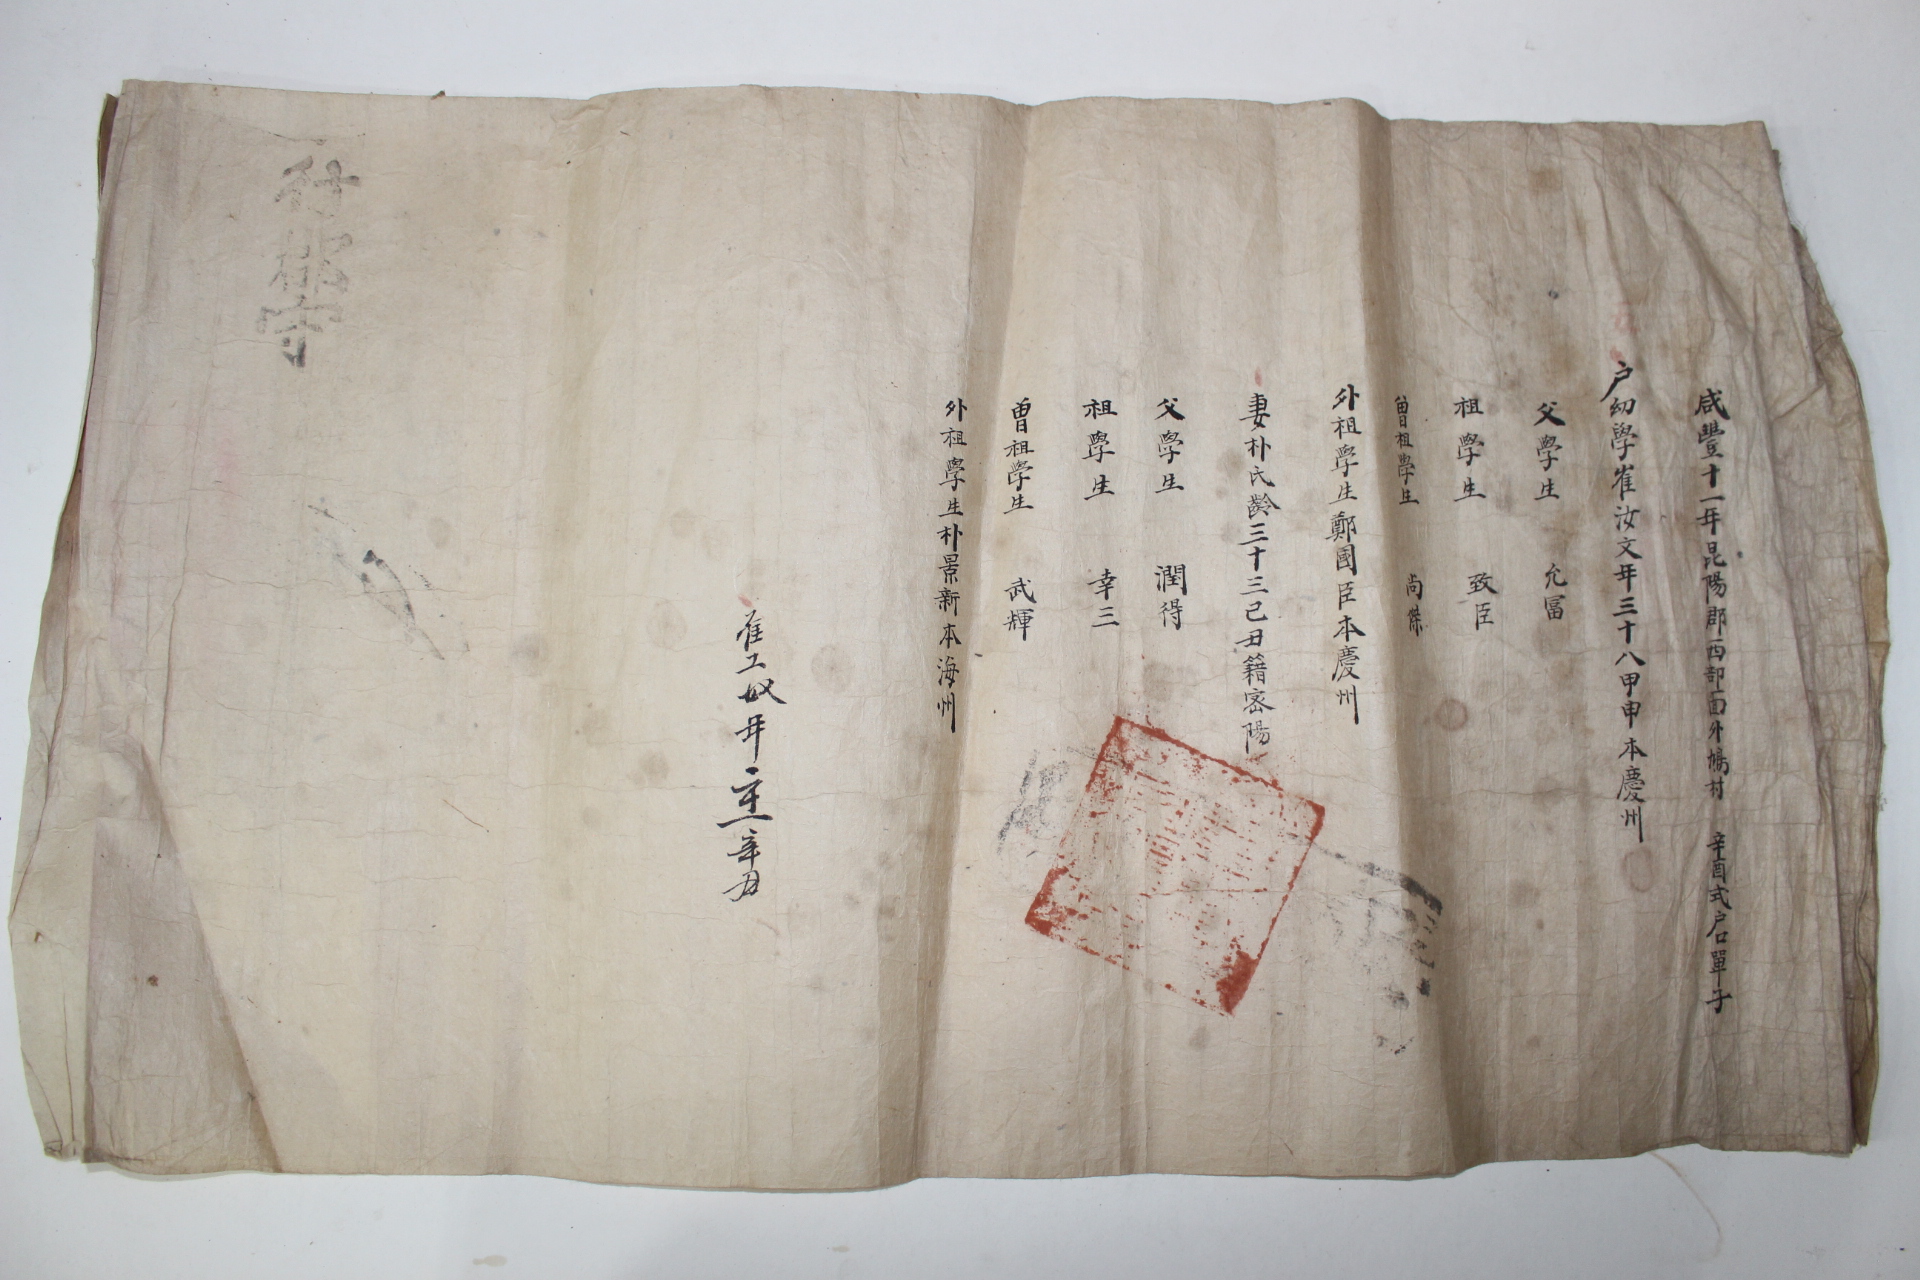 咸豐十一年昆陽郡西部面外鳩村 辛酉式户口單子
户幼學崔汝文年三十八甲申本慶州
父學生 允富
祖學生 致臣
曾祖學生 尚傑
外祖學生鄭國臣本慶州
妻朴氏齡三十三己丑籍密陽
父學生 潤得
祖學生 幸三
曾祖學生 武輝
外祖學生朴景新本海州
年 辛丑
行郡守